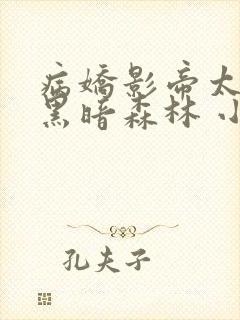 病嬌影帝太
黑暗森林 小
孔夫子